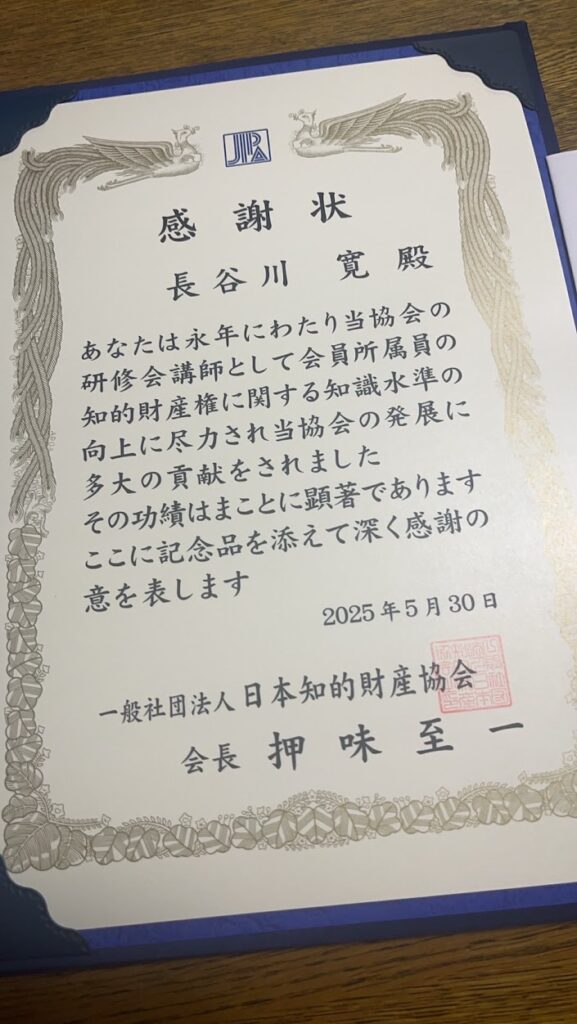 JIPA
感謝状
長谷川 寛 殿
あなたは永年にわたり当協会の
研修会講師として会員所属員の
知的財産権に関する知識水準の
向上に尽力され当協会の発展に
多大の貢献をされました
その功績はまことに顕著であります
ここに記念品を添えて深く感謝の
意を表します
2025年5月30日
一般社団法人日本知的財産協会
会長 押味至一